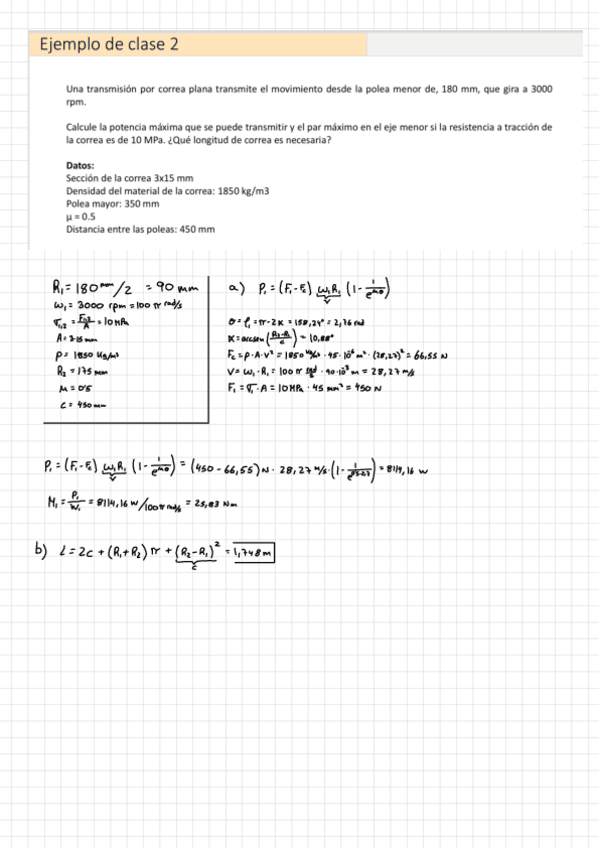 Ejemplo de clase 2
Una transmisión por correa plana transmite el movimiento desde la polea menor de, 180 mm, que gira a 3000
rpm.
Calcule la potencia máxima que se puede transmitir y el par máximo en el eje menor si la resistencia a tracción de
la correa es de 10 MPa. ¿Qué longitud de correa es necesaria?
Datos:
Sección de la correa 3x15 mm
Densidad del material de la correa: 1850 kg/m3
Polea mayor: 350 mm
μ = 0.5
Distancia entre las poleas: 450 mm
R₁ = 180 mm/2 = 90 mm
ω₁ = 3000 rpm = 100 π rad/s
= 10 MPa
A = 3·15 mm
ρ = 1850 kg/m³
R₂ = 175 mm
μ = 0'5
c = 450 mm
a) P₁ = (F₁ - Fc) ω₁R₁ (1 - 1/e^μθ)
v
θ = = π - 2α = 158,24° = 2,76 rad
α = arcsen (R₂-R₁/c) = 10,88°
Fc = ρ · A · v² = 1850 kg/m³ · 45 · 10⁻⁶ m² · (28,27)² = 66,55 N
V = ω₁ · R₁ = 100 π rad/s · 90 · 10⁻³ m = 28,27 m/s
F₁ = σ₁ · A = 10 MPa · 45 mm² = 450 N
P₁ = (F₁ - Fc) ω₁R₁ (1 - 1/e^μθ) = (450 - 66,55) N · 28,27 m/s · (1 - ) = 8114,16 W
v
M₁ = P₁/ω₁ = 8114,16 W/100π rad/s = 25,83 Nm
b) L = 2c + (R₁+R₂) π + (R₂-R₁)²/c = 1,748 m